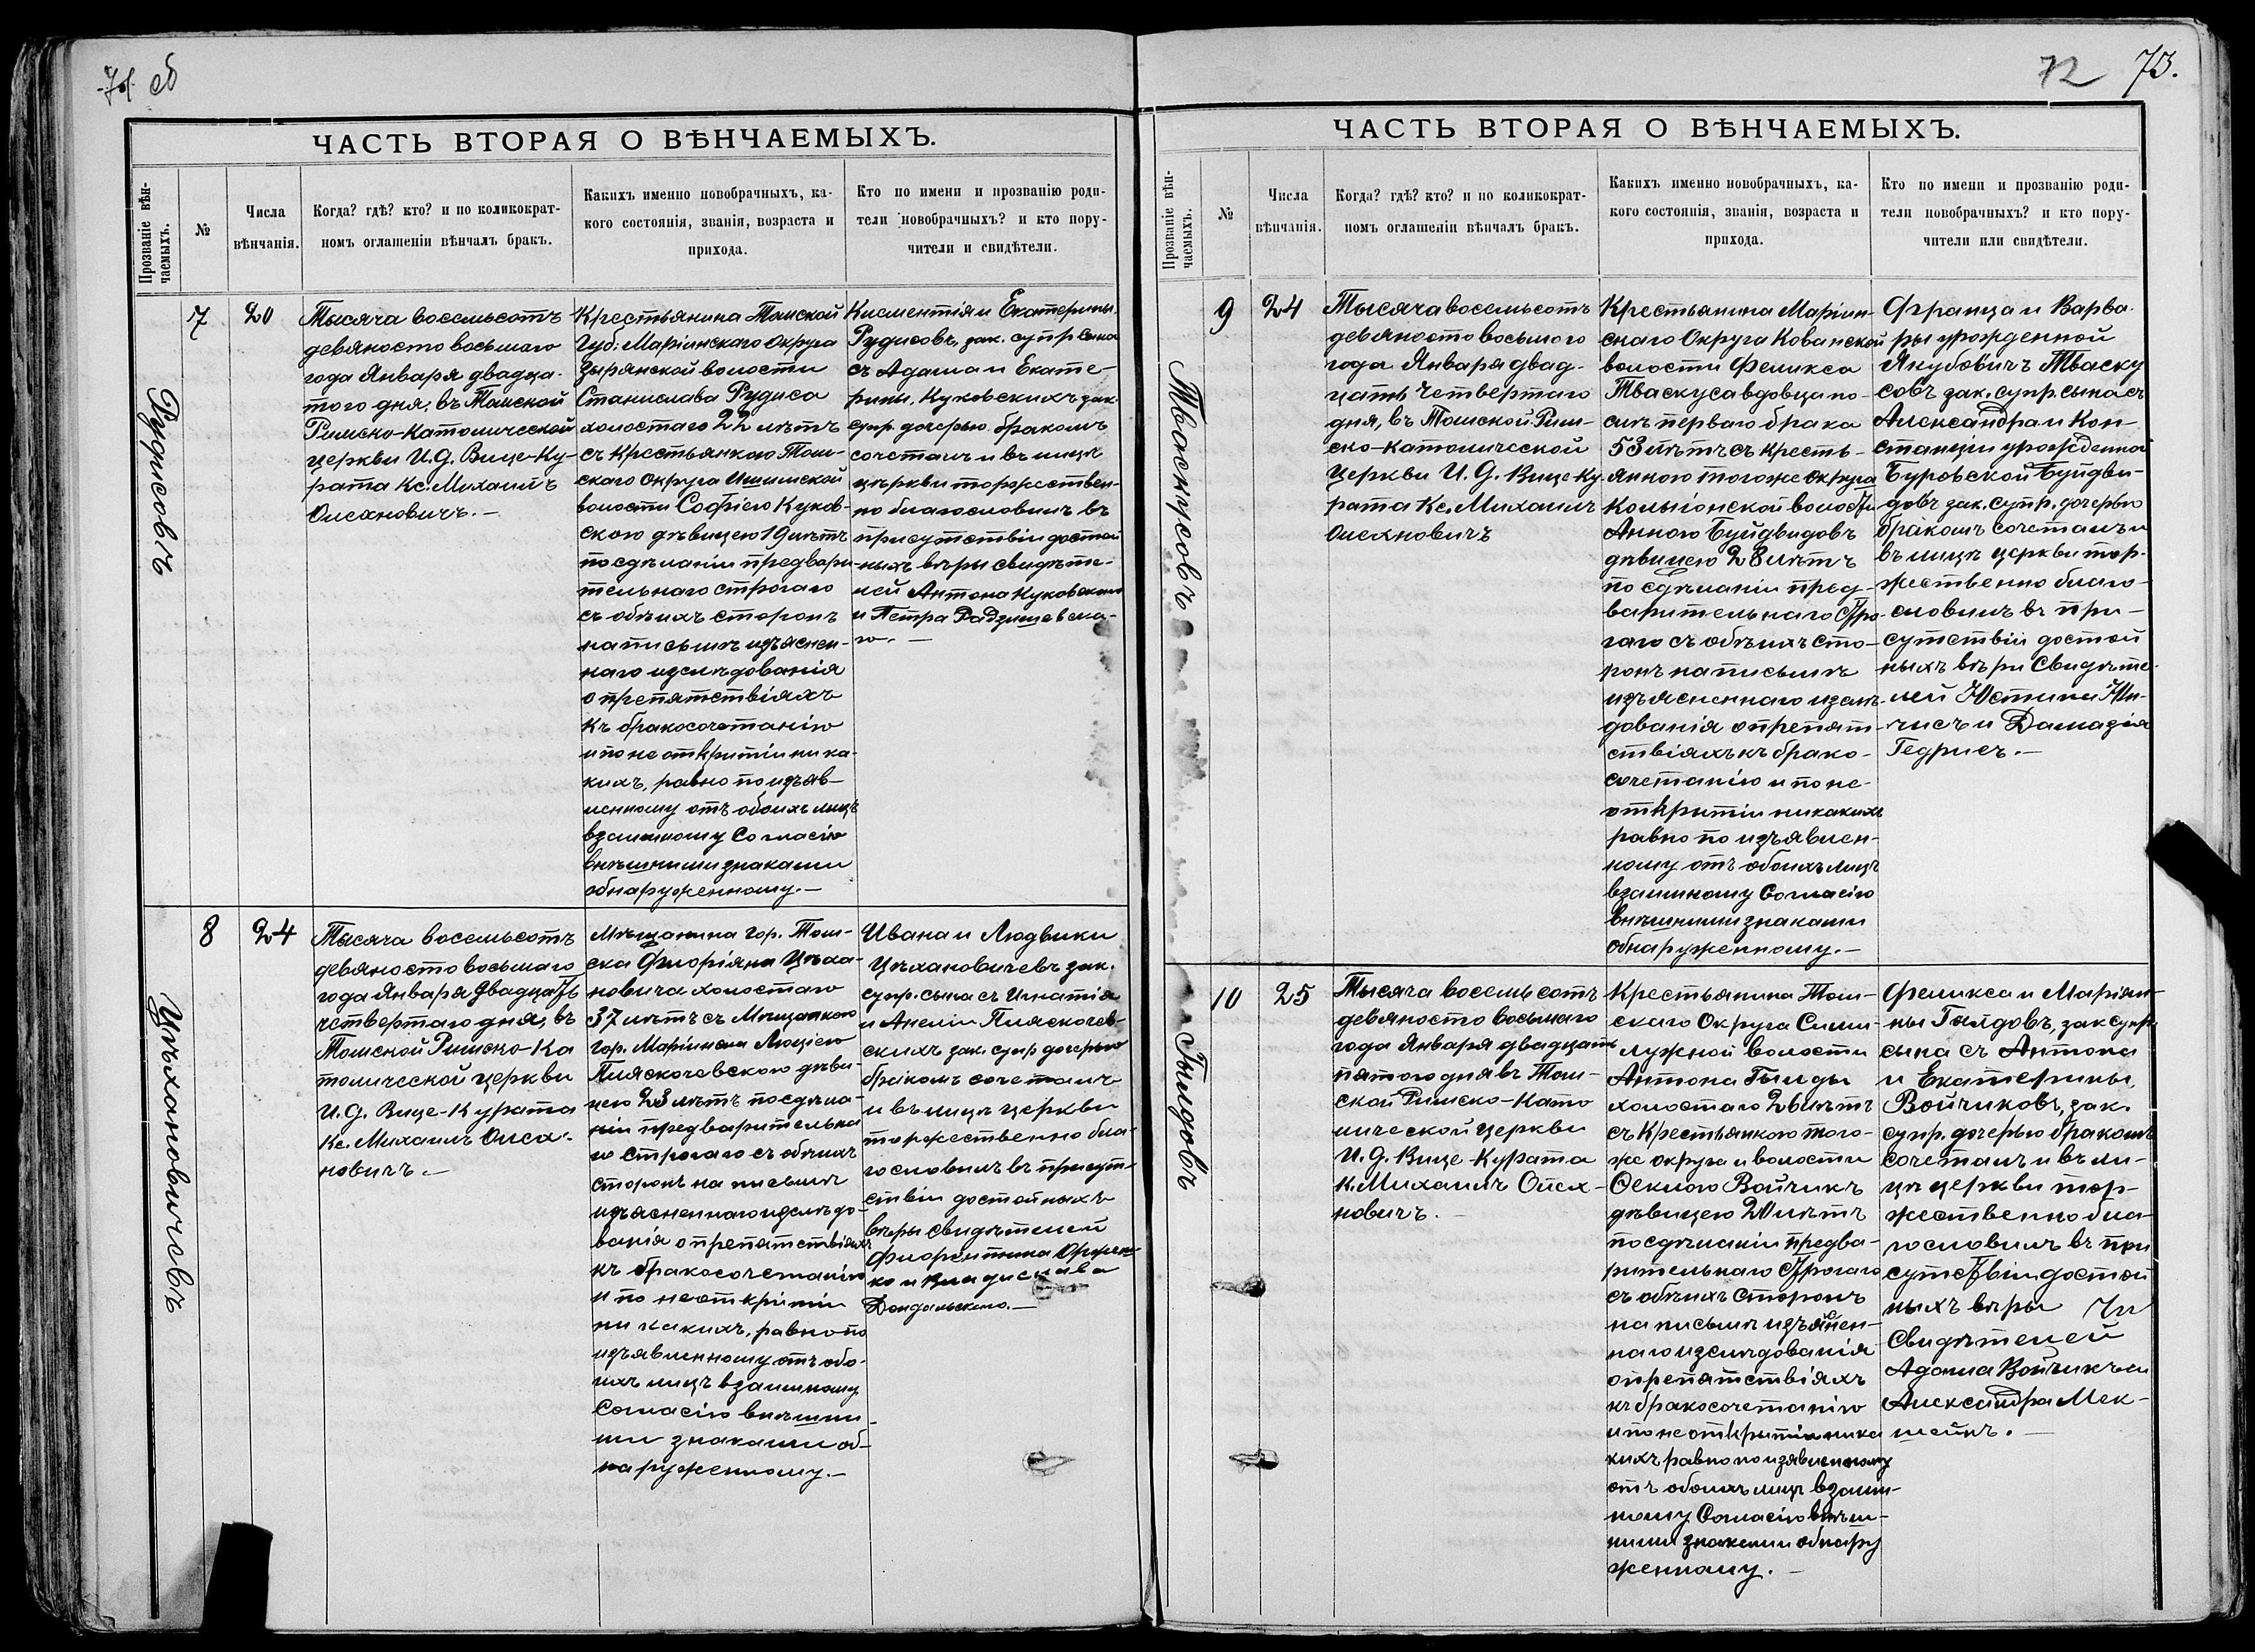 71 об
ЧАСТЬ ВТОРАЯ О ВѢНЧАЕМЫХЪ.
Прозваніе вѣн-
чаемыхъ.
№
Числа
вѣнчанія.
Когда? гдѣ? кто? и по коликократ-
номъ оглашеніи вѣнчалъ бракъ.
Какихъ именно новобрачныхъ, ка-
кого состоянія, званія, возраста и
прихода.
Кто по имени и прозванію роди-
тели новобрачныхъ? и кто пору-
чители и свидѣтели.
Рудисовъ
7
20
Тысяча восемьсотъ
девяносто восьмаго
года Января двадца-
того дня, въ Томской
Римско-Католической
церкви И.д. Вице-Ку-
рата Кс. Михаилъ
Олехновичъ.-
Крестьянина Томской
Губ: Маріинскаго Округа
Зырянской волости
Станислава Рудиса
холостаго 22 лѣтъ
съ Крестьянкою Том-
скаго Округа Ишимской
волости Софіею Куков-
скою дѣвицею 19 лѣтъ
по сдѣланіи предвари-
тельнаго строгаго
съ обѣихъ сторонъ
на письмѣ изъяснен-
наго изслѣдованія
о препятствіяхъ
къ бракосочетанію
и по не открытіи ника-
кихъ, равно по изъяв-
ленному отъ обоихъ лицъ
взаимному Согласію
внѣшними знаками
обнаруженному.-
Климентія и Екатерины
Рудисовъ, зак. супр сына
съ Адама и Екате-
рины, Куковскихъ зак.
супр. дочерью бракомъ
сочеталъ и въ лицѣ
церкви торжествен-
но благословилъ въ
присутствіи достой
ныхъ вѣры свидѣте-
лей Антона Куковскаго
и Петра Радзишевска-
го.-
Цѣхановичевъ
8
24
Тысяча восемьсотъ
девяносто восьмаго
года Января двадцать
четвертаго дня, въ
Томской Римско-Ка
толической церкви
И.д. Вице-Курата
Кс. Михаилъ Олех-
новичъ.-
Мѣщанина гор. Том-
ска Флоріяна Цѣха-
новича холостаго
37 лѣтъ съ Мѣщанкою
гор. Маріинска Люціею
Пляскочевскою дѣви-
цею 23 лѣтъ по сдѣла-
ніи предварительна
го строгаго съ обѣихъ
сторонъ на письмѣ
изъясненнаго изслѣдо-
ванія о препятствіяхъ
къ бракосочетанію
и по не открытіи
ни какихъ, равно по
изъявленному отъ обо-
ихъ лицъ взаимному
Согласію внѣшни-
ми знаками об-
наруженному.-
Ивана и Людвики
Цѣхановичевъ зак.
супр. сына съ Игнатія
и Анеліи Пляскочев-
скихъ зак. супр дочерью
бракомъ сочеталъ
и въ лицѣ церкви
торжественно бла-
гословилъ въ присут-
ствіи достойныхъ
вѣры свидѣтелей
ко и Владислава
72
73.
ЧАСТЬ ВТОРАЯ О ВѢНЧАЕМЫХЪ.
Прозваніе вѣн-
чаемыхъ.
№
Числа
вѣнчанія.
Когда? гдѣ? кто? и по коликократ-
номъ оглашеніи вѣнчалъ бракъ.
Какихъ именно новобрачныхъ, ка-
кого состоянія, званія, возраста и
прихода.
Кто по имени и прозванію роди-
тели новобрачныхъ? и кто пору-
чители или свидѣтели.
Тваскусовъ
9
24
Тысяча восемьсотъ
девяносто восьмого
года Января двад-
цать Четвертаго
дня, въ Томской Рим-
ско-католической
церкви И.д. Вице Ку-
рата Кс. Михаилъ
Олехновичъ
Крестьянина Маріин-
скаго Округа Кованской
волости Феликса
Тваскуса вдовца по-
слѣ перваго брака
53 лѣтъ съ Кресть-
янкою тогоже Округа
Колыонской волости
Анною Буйдвидовъ
дѣвицею 28 лѣтъ
по сдѣланіи пред-
варительнаго стро-
гаго съ обѣихъ сто-
ронъ на письмѣ
изъясненнаго изслѣ-
дованія о препят-
ствіяхъ къ брако-
сочетанію и по не
открытіи никакихъ
равно по изъявлен-
ному отъ обоихъ лицъ
взаимному Согласію
внѣшними знаками
обнаруженному.-
Франца и Варва-
ры урожденной
Якубовичъ Тваску
совъ зак. супр. сына съ
Александра и Кон-
станціи урожденной
Буровской Буйдви-
довъ зак. супр. дочерью
бракомъ сочеталъ и
въ лицѣ церкви тор-
жественно благо-
словилъ въ при-
сутствіи достой
ныхъ вѣры Свидѣте-
лей Юстина
и Дамазія
Гедрисъ.-
Гылдовъ
10
25
Тысяча восемь сотъ
девяносто восьмаго
года Января двадцать
пятого дня въ Том-
ской Римско-Като
лической церкви
И.д. Вице-Курата
К. Михаилъ Олех-
новичъ.
Крестьянина Том-
скаго Округа Сими-
лужной волости
Антона Гылды
холостаго 26 лѣтъ
съ Крестьянкою того-
же округа и волости
Феклою Войчикъ
дѣвицею 20 лѣтъ
по сдѣланіи предва-
рительнаго строгаго
съ обѣихъ Сторонъ
на письмѣ изъяснен-
наго изслѣдованія
о препятствіяхъ
къ бракосочетанію
и по не открытіи ника
кихъ равно по изявленному
отъ обоихъ лицъ взаим-
ному Согласію внѣш-
ними знаками обнару
женному.-
Феликса и Маріян-
ны Гылдовъ, зак супр.
сына съ Антона
и Екатерины,
Войчиковъ, зак.
супр. дочерью бракомъ
сочеталъ и въ ли-
цѣ церкви тор-
жественно бла-
гословилъ въ при
сутствіи достой
ныхъ вѣры
Свидѣтелей
Адама Войчикъ и
Александра Мек-
шейнъ.-